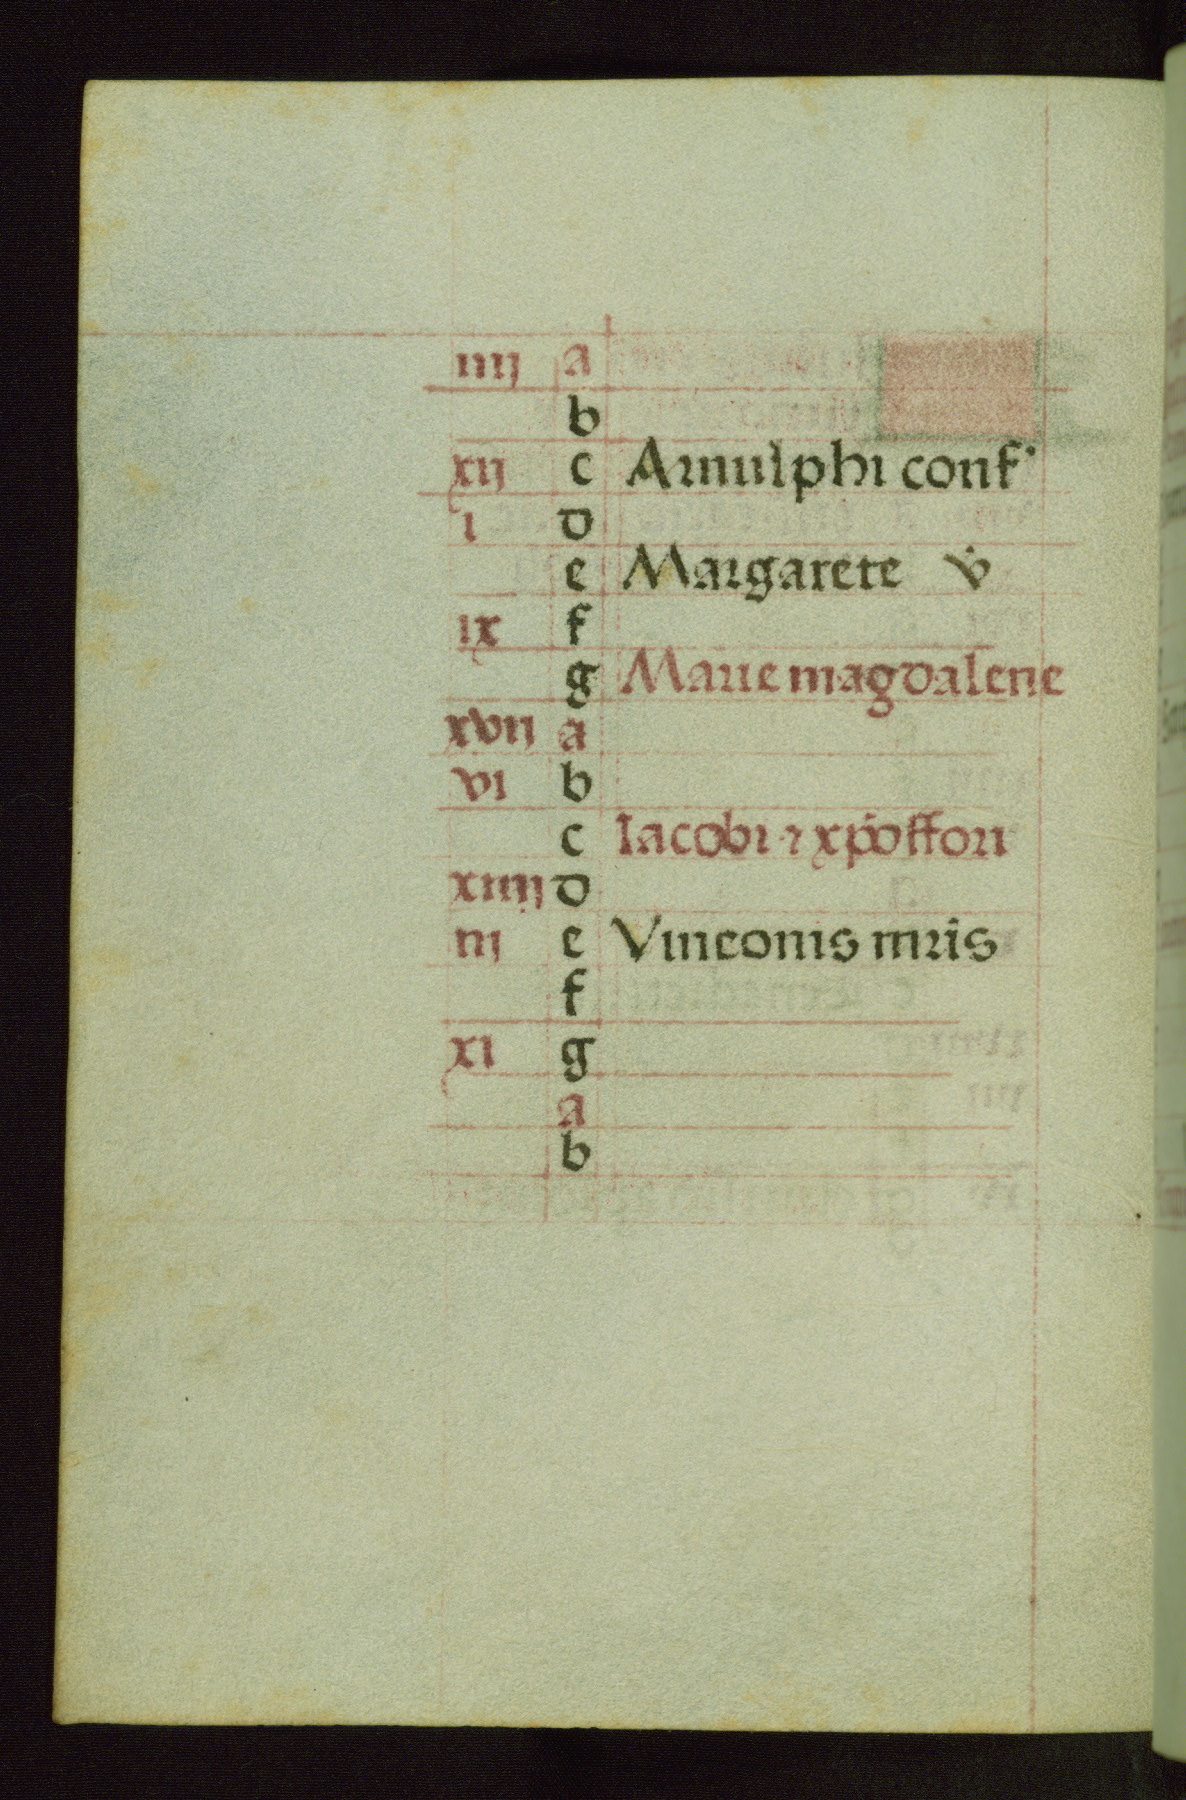 iiij a
b
xij c Arnulphi conf͛
i d
e Margarete v̇
ix f
g Marie magdalene
xvij a
vi b
c Iacobi ⁊ xp̄offori
xiiij d
iij e Vinconis mr̄is
f
xi g
a
b